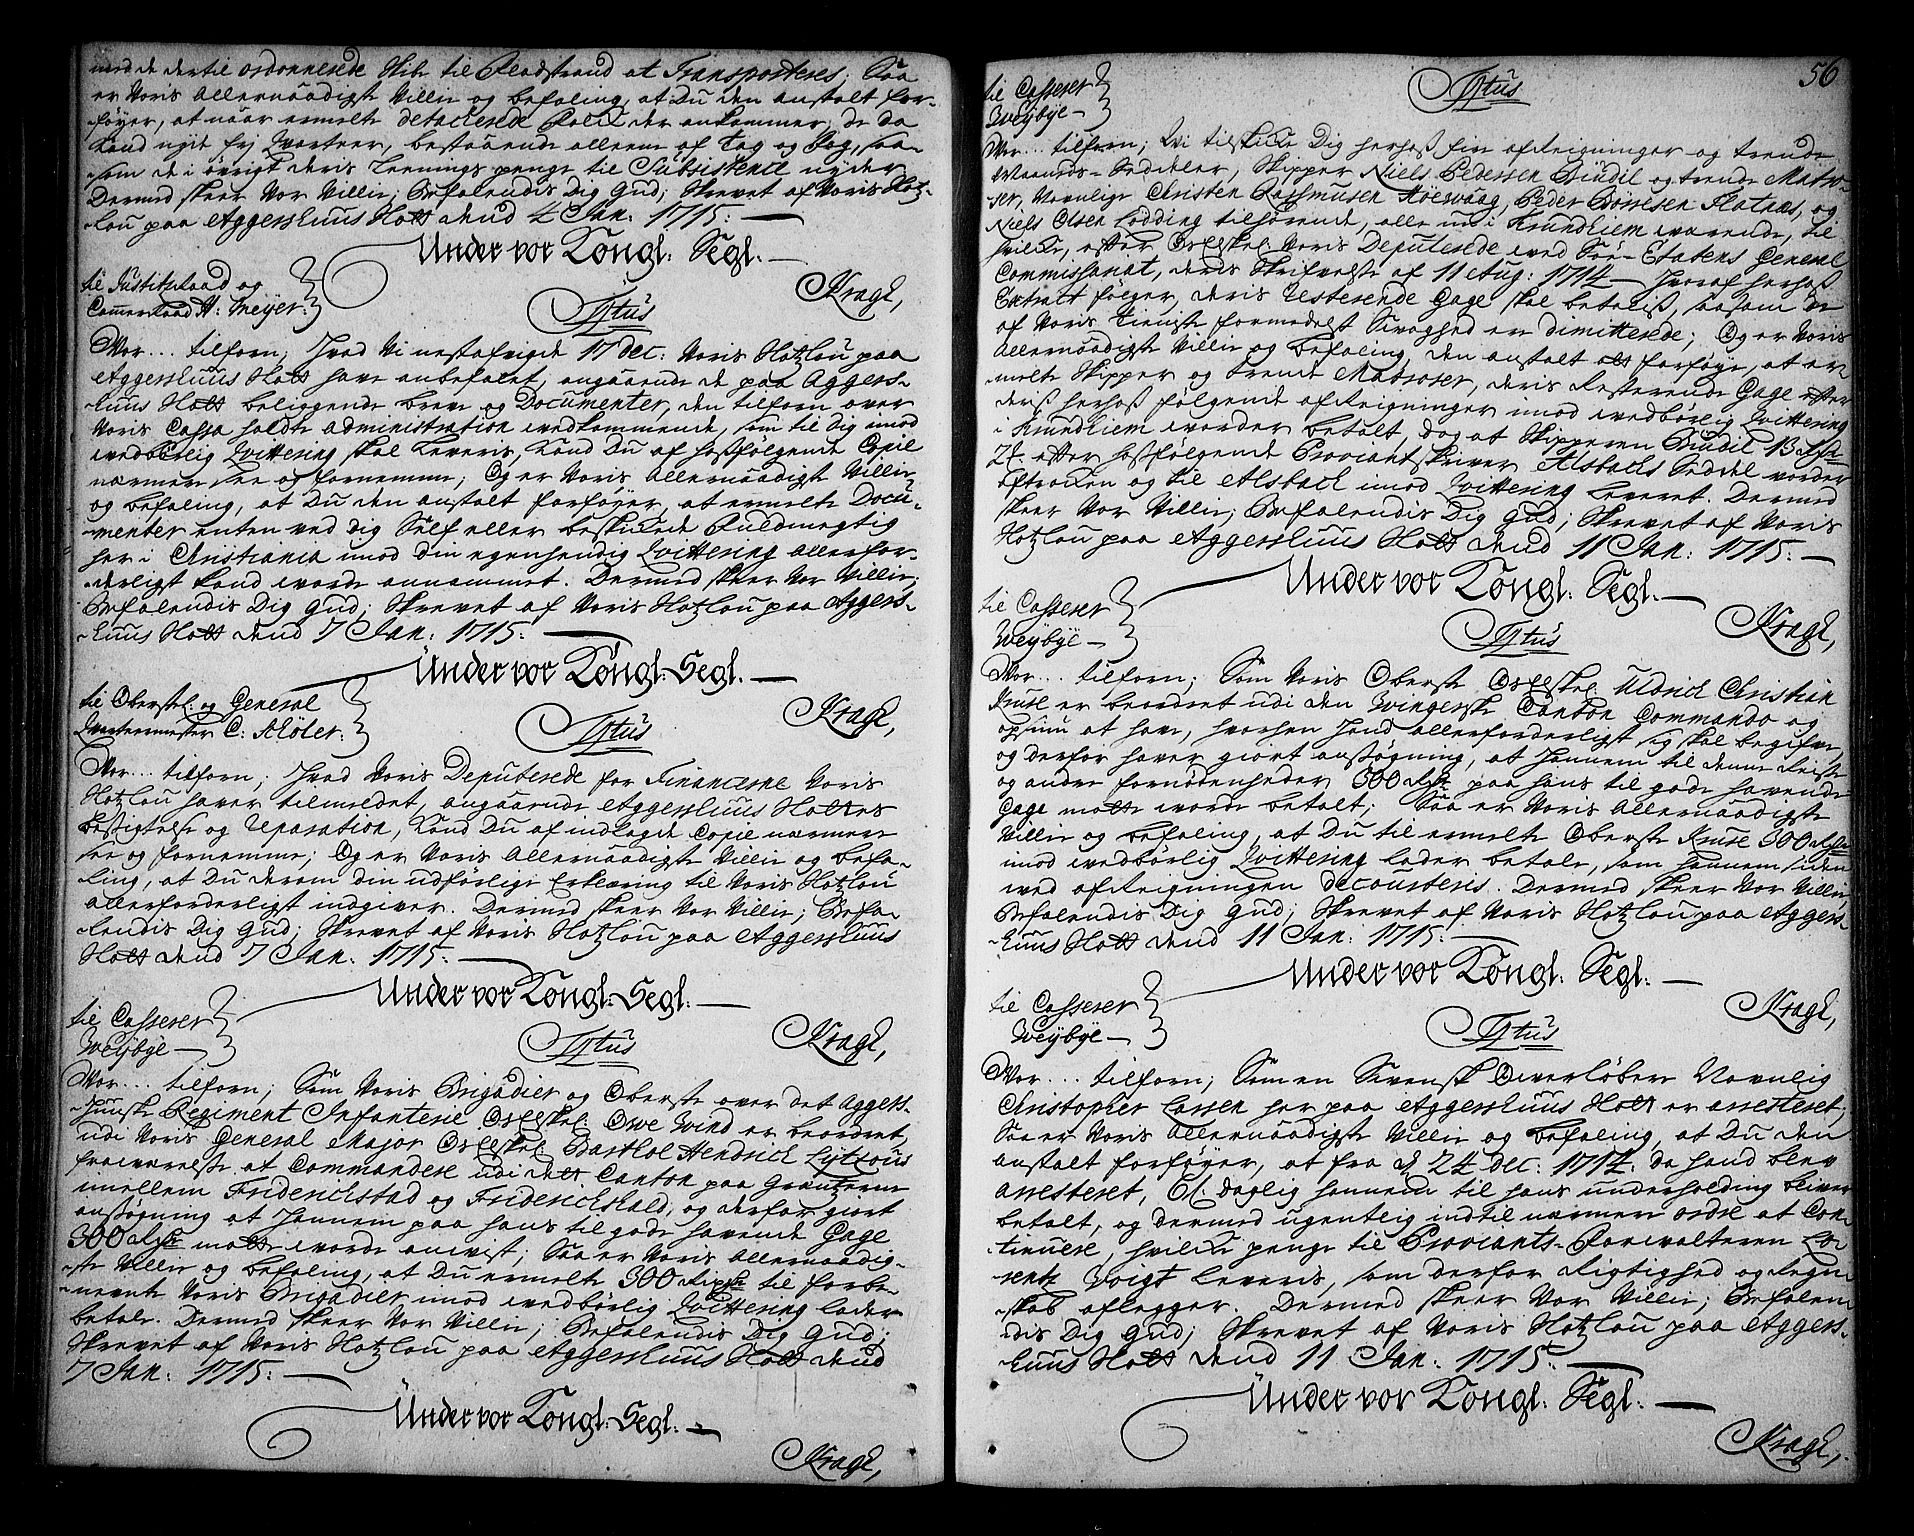 med de dertil ordonnerede Skibe til Fladstrand at Transporteres; Saa
er Voris Allernaadigste Villie og befaling, at Du den anstalt for-
føyer, at naar ermelte detacherede Folck der ankommer, de da
kand nyde frj Qvarteer, bestaaende alleene af Tag og Fag, saa-
som de i øvrigt deris Leenings penge til Subsistence nyder
Dermed skeer Vor Villie, Befalendis Dig Gud; Skrevet af Voris Slotz-
lou paa Aggershuus Slott dend 4 Jan: 1715:
Under vor Kongl: Segl.
Kragh,
til Justitzraad og
Camerraad H: Meyer.
Tytus
Vor... tilforn, Hvad Vi nestafvigte 17 dec: Voris Slotzlou paa
Aggershuus Slott have anbefalet, angaaende de paa Aggers-
huus Slott beliggende breve og Documenter, den tilforn over
Voris Cassa holdte Administration vedkommende, som til Dig imod
vedbørlig Qvittering skal Leveris, kand Du af hosfølgende Copie
nærmere see og fornemme; Og er Voris Allernaadigste Villie
og befaling, at Du den anstalt forføyer, at ermelte Docu-
menter enten ved Dig Self eller beskickede Fuldmegtig
her i Christiania imod din egenhendig Qvittering allerfor-
derligst kand vorde annammet. Dermed skeer Vor Villie,
Befalendis Dig Gud; Skrevet af Voris Slotzlou paa Aggers-
huus Slott dend 7 Jan: 1715:
Under vor Kongl: Segl.
Kragh,
til Oberstl. og General
Qvarteermester C: Møler.
Tytus
Vor... tilforn; Hvad Voris Deputerede for Financerne Voris
Slotzlou haver tilmeldet, angaaende Aggershuus Slottes
besigtelse og Reparation, kand Du af indlagde Copie nærmere
see og fornemme; Og er Voris Allernaadigste Villie og befa-
ling, at Du derom din udførlige Erklæring til Voris Slotzlou
allerforderligst indgiver. Dermed skeer Vor Villie; Befa-
lendis Dig Gud; Skrevet af Voris Slotzlou paa Aggershuus
Slott dend 7 Jan: 1715:
Under vor Kongl: Segl.
Kragh,
til Casserer
Weybye
Tytus
Vor... tilforn; Som Voris Brigadier og Oberste over det Aggers-
huuske Regiment Infanterie Os Elskel. Owe Wind er beordret,
udi Voris General Major Os Elskel. Barthol Hendrich Lytzous
fraværelse at Commandere udi dett Canton paa Grentzerne
imellem Friderichstad og Friderichshald, og derfor giort
ansøgning at hannem paa hans til gode havende Gage
300 Rdr motte vorde anvist; Saa er Voris Allernaadig-
ste Villie og befaling, at Du ermelte 300 Rigsdr til forbe-
nevnte Voris Brigadier imod vedbørlig Qvittering lader
betale. Dermed skeer Vor Villie; Befalendis Dig Gud;
Skrevet af Voris Slotzlou paa Aggershuus Slott dend
7 Jan: 1715:
Under vor Kongl: Segl.
Kragh,
56
til Casserer
Weybye
Tytus
Vor... tilforn; Wi tilskicke Dig herhoß fire afReigninger og trende
Maaneds-Sedeler, Skipper Niels Pedersen Bindil og trende Matro-
ser, Navnlige Christen Rassmusen Høesvaag, Peder Børresen Flatnes, og
Niels Olsen Lodding tilhørende, alle nu i Trundhiem værende, til
hvilcke, efter Os Elskel. Voris Deputerede ved Søe-Etatens General
Commissariat, deris Skrifvelse af 11 Aug: 1714 hvoraf herhoß
Extract følger, deris Resterende Gage skal betales, saasom de
af Voris tieniste formedelst Svaghed ere dimitterede; Og er Voris
Allernaadigste Villie og befaling, den anstalt at forføye, at er-
melte Skipper og trende Matroser, deris Resterende Gage efter
deris herhoß følgende afReigninger imod vedbørlig Qvittering
i Trundhiem vorder betalt, dog at Skipperen Bindil 13 Rdr
24 efter hosfølgende Proviantskriver Alsbachs Sedel vorder
aftrocken og til Alsbach imod Qvittering Leveret. Dermed
skeer Vor Villie; Befalendis Dig Gud; Skrevet af Voris
Slotzlou paa Aggershuus Slott dend 11 Jan: 1715:
Under vor Kongl: Segl.
Kragh,
til Casserer
Weybye
Tytus
Vor... tilforn; Som Voris Oberste Os Elskel. Uldrich Christian
Kruse er beordret udi den Wingerske Canton Commando og
opsiun at have, hvorhen hand allerforderligst sig skal begifve,
og derfor haver giort ansøgning, at hannem til denne Reise
og andre fornødenheder 300 Rdr paa hans til gode havende
Gage motte vorde betalt; Saa er Voris Allernaadigste
Villie og befaling, at Du til ermelte Oberste Kruse 300 Rdr
imod vedbørlig Qvittering lader betale, som hannem siden
ved afReigningen decourteris. Dermed skeer Vor Villie,
Befalendis Dig Gud; Skrevet af Voris Slotzlou paa Aggers-
huus Slott dend 11 Jan: 1715:
Under vor Kongl: Segl.
Kragh,
til Casserer
Weybye
Tytus
Vor... tilforn; Som en Svensk Overløber Navnlig
Christopher Lassen her paa Aggershuus Slott er arresteret,
Saa er Voris Allernaadigste Villie og befaling, at Du den
anstalt forføyer, at fra d 24 Dec: 1714. da hand blev
arresteret, daglig hannem til hans underholding bliver
betalt, og dermed ugentlig indtil nærmere ordre at Con-
tinuere, hvilcke penge til Proviants-Forvalteren Lo-
rentz Voigt Leveris, som derfor Rigtighed og Regn-
skab aflegger. Dermed skeer Vor Villie; Befalen-
dis Dig Gud; Skrevet af Voris Slotzlou paa Aggers-
huus Slott dend 11 Jan: 1715:
Under vor Kongl: Segl.
Kragh,